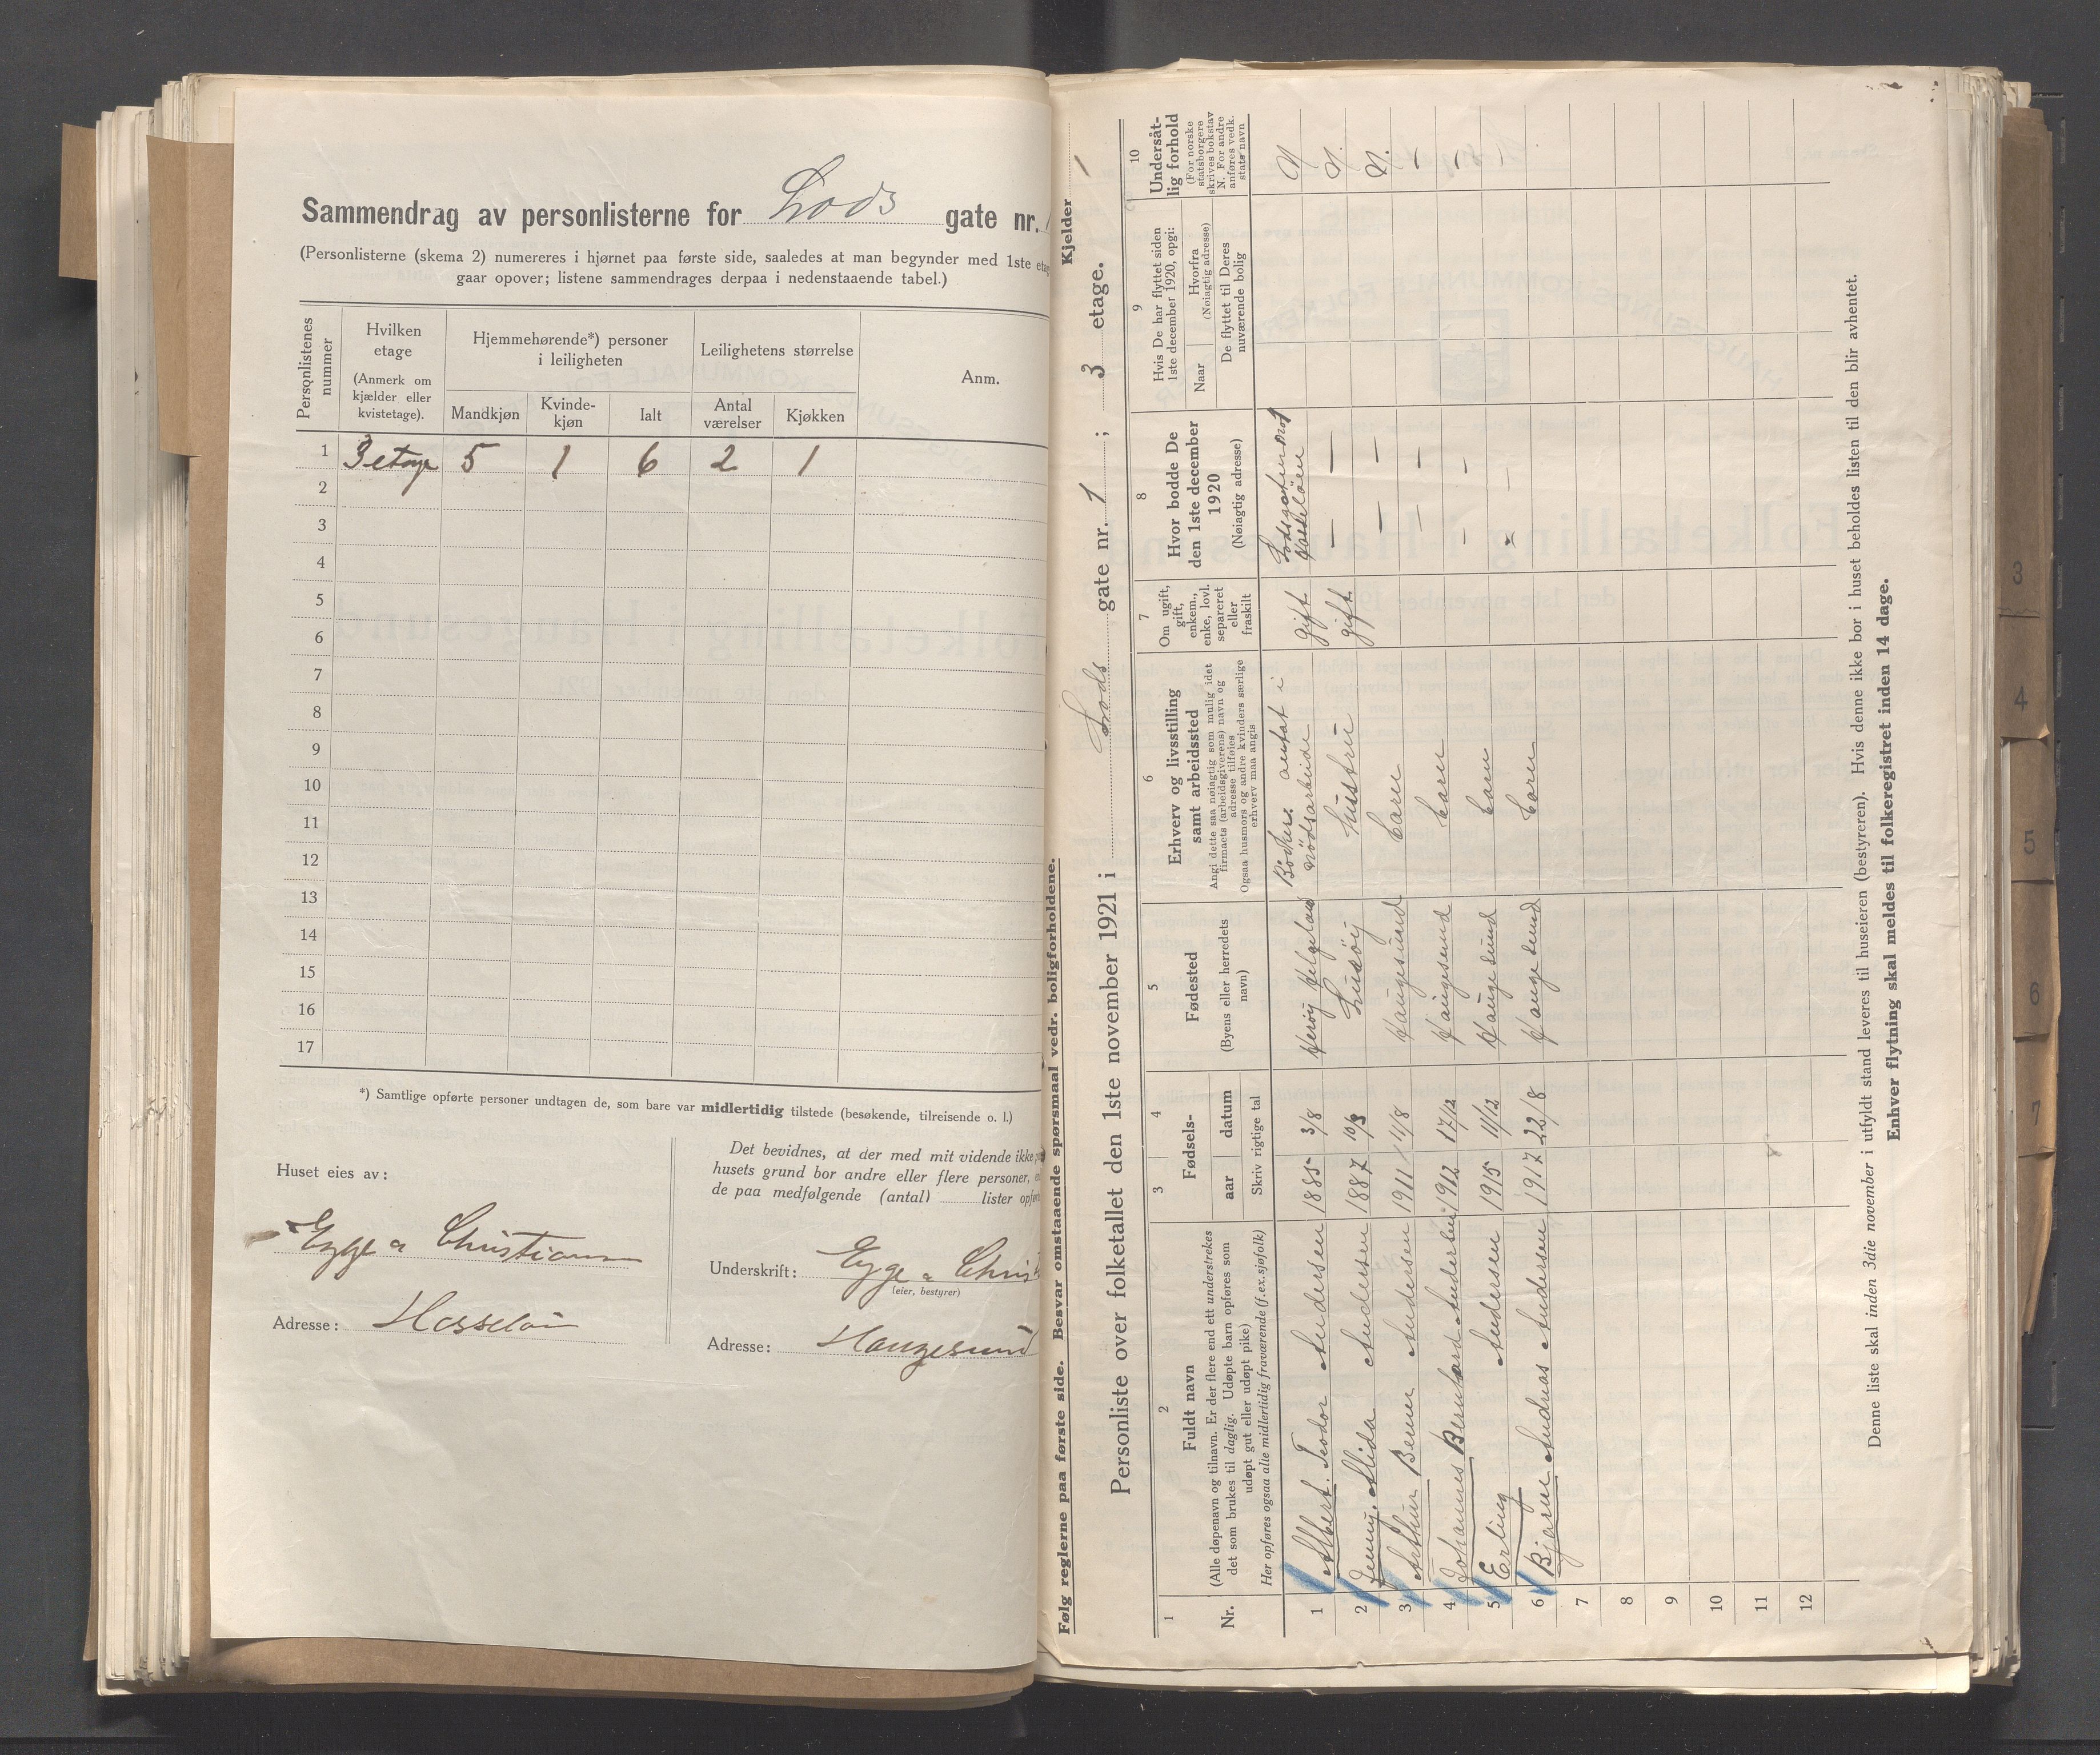 Sammendrag av personlisterne for Lods gate nr. 1
(Personlisterne (skema 2) numereres i hjørnet paa første side, saaledes at man begynder med 1ste etage
gaar opover; listene sammendrages derpaa i nedenstaaende tabel.)
Personlistenes nummer
Hvilken etage
(Anmerk om kjælder eller kvistetage).
Hjemmehørende*) personer i leiligheten
Mandkjøn
Kvinde-kjøn
Ialt
Leilighetens størrelse
Antal værelser
Kjøkken
Anm.
1 3 etage 5 1 6 2 1
2
3
4
5
6
7
8
9
10
11
12
13
14
15
16
17
*) Samtlige opførte personer undtagen de, som bare var midlertidig tilstede (besøkende, tilreisende o. l.)
Huset eies av:
Egge & Christiansen
Adresse: Hasseløen
Det bevidnes, at der med mit vidende ikke
husets grund bor andre eller flere personer,
de paa medfølgende (antal) lister opført
Underskrift: Egge & Chris
(eier, bestyrer)
Adresse: Haugesund
Følg reglerne paa første side. Besvar omstaaende spørsmaal vedr. boligforholdene.
Kjelder 1
Personliste over folketallet den 1ste november 1921 i Lods gate nr. 1; 3 etage.
1
Nr.
2
Fuldt navn
(Alle døpenavn og tilnavn. Er der flere end ett understrekes
det som brukes til daglig. Udøpte barn opføres som
udøpt gut eller udøpt pike)
Her opføres ogsaa alle midlertidig fraværende (f.ex. sjøfolk)
3 4
Fødsels-
aar datum
Skriv rigtige tal
5
Fødested
(Byens eller herredets navn)
6
Erhverv og livsstilling
samt arbeidssted
Angi dette saa nøiagtig som mulig idet
firmaets (arbeidsgiverens) navn og
adresse tilføies
Ogsaa husmors og andre kvinders særlige
erhverv maa angis
7
Om ugift, gift, enkem., enke, lovl. separeret eller fraskilt
8
Hvor bodde De
den 1ste december
1920
(Nøiagtig adresse)
9
Hvis De har flyttet siden
1ste december 1920, opgi:
Naar
Hvorfra
(Nøiagtig adresse)
De flyttet til Deres
nuværende bolig
10
Undersåt-
lig forhold
(For norske
statsborgere
skrives bokstav
N. For andre
anføres vedk.
stats navn
1 Albert Teodor Andersen 1885 3/8 Herøy Helgeland Bødker antat i nödsarbeide gift Hasseløen N
2 Jenny Alida Andersen 1887 10/3 Husøy hustru gift — — N.
3 Arthur Berner Andersen 1911 14/8 Haugesund barn — — N.
4 Johannes Bernhard Andersen 1912 17/12 Haugesund barn — — —
5 Erling Andersen 1915 11/12 Haugesund barn - - -
6 Bjarne Andreas Andersen 1917 22/8 Haugesund barn - - -
7
8
9
10
11
12
Denne liste skal inden 3die november i utfyldt stand leveres til huseieren (bestyreren). Hvis denne ikke bor i huset beholdes listen til den blir avhentet.
Enhver flytning skal meldes til folkeregistret inden 14 dage.
3
4
5
6
7